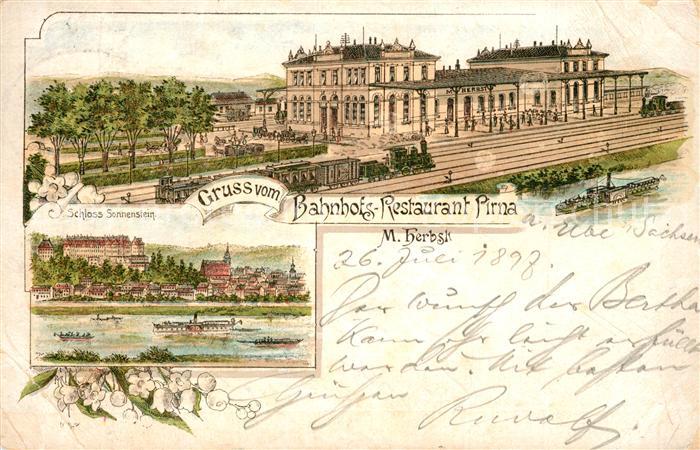 HERBST
Gruss vom
Bahnhofs-Restaurant Pirna
M. Herbst
Schloss Sonnenstein.
a. Elbe, Sachsen
26. Juli 1897.
Der Wunsch der Bertha
kann sehr leicht erfüllt
werden. Mit besten
Grüßen Rudolf